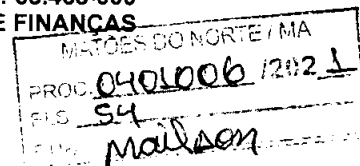 E FINANÇAS
MATÕES DO NORTE / MA
PROC. 0401006 /2021
FLS 54
Mailson